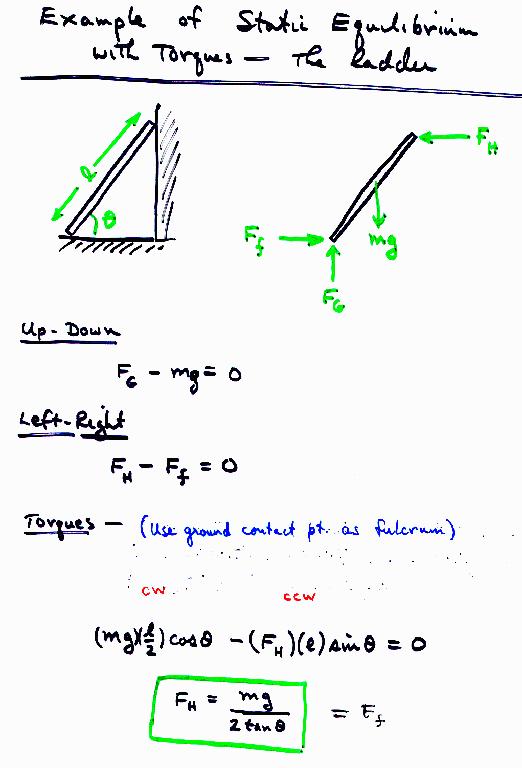 Example of Static Equilibrium
with Torques — The Ladder
l
θ
F_H
F_f
mg
F_G
Up-Down
F_G - mg = 0
Left-Right
F_H - F_f = 0
Torques — (Use ground contact pt. as fulcrum)
cw ccw
(mg)(l/2) cosθ - (F_H)(l) sinθ = 0
F_H = mg / 2 tanθ = F_f